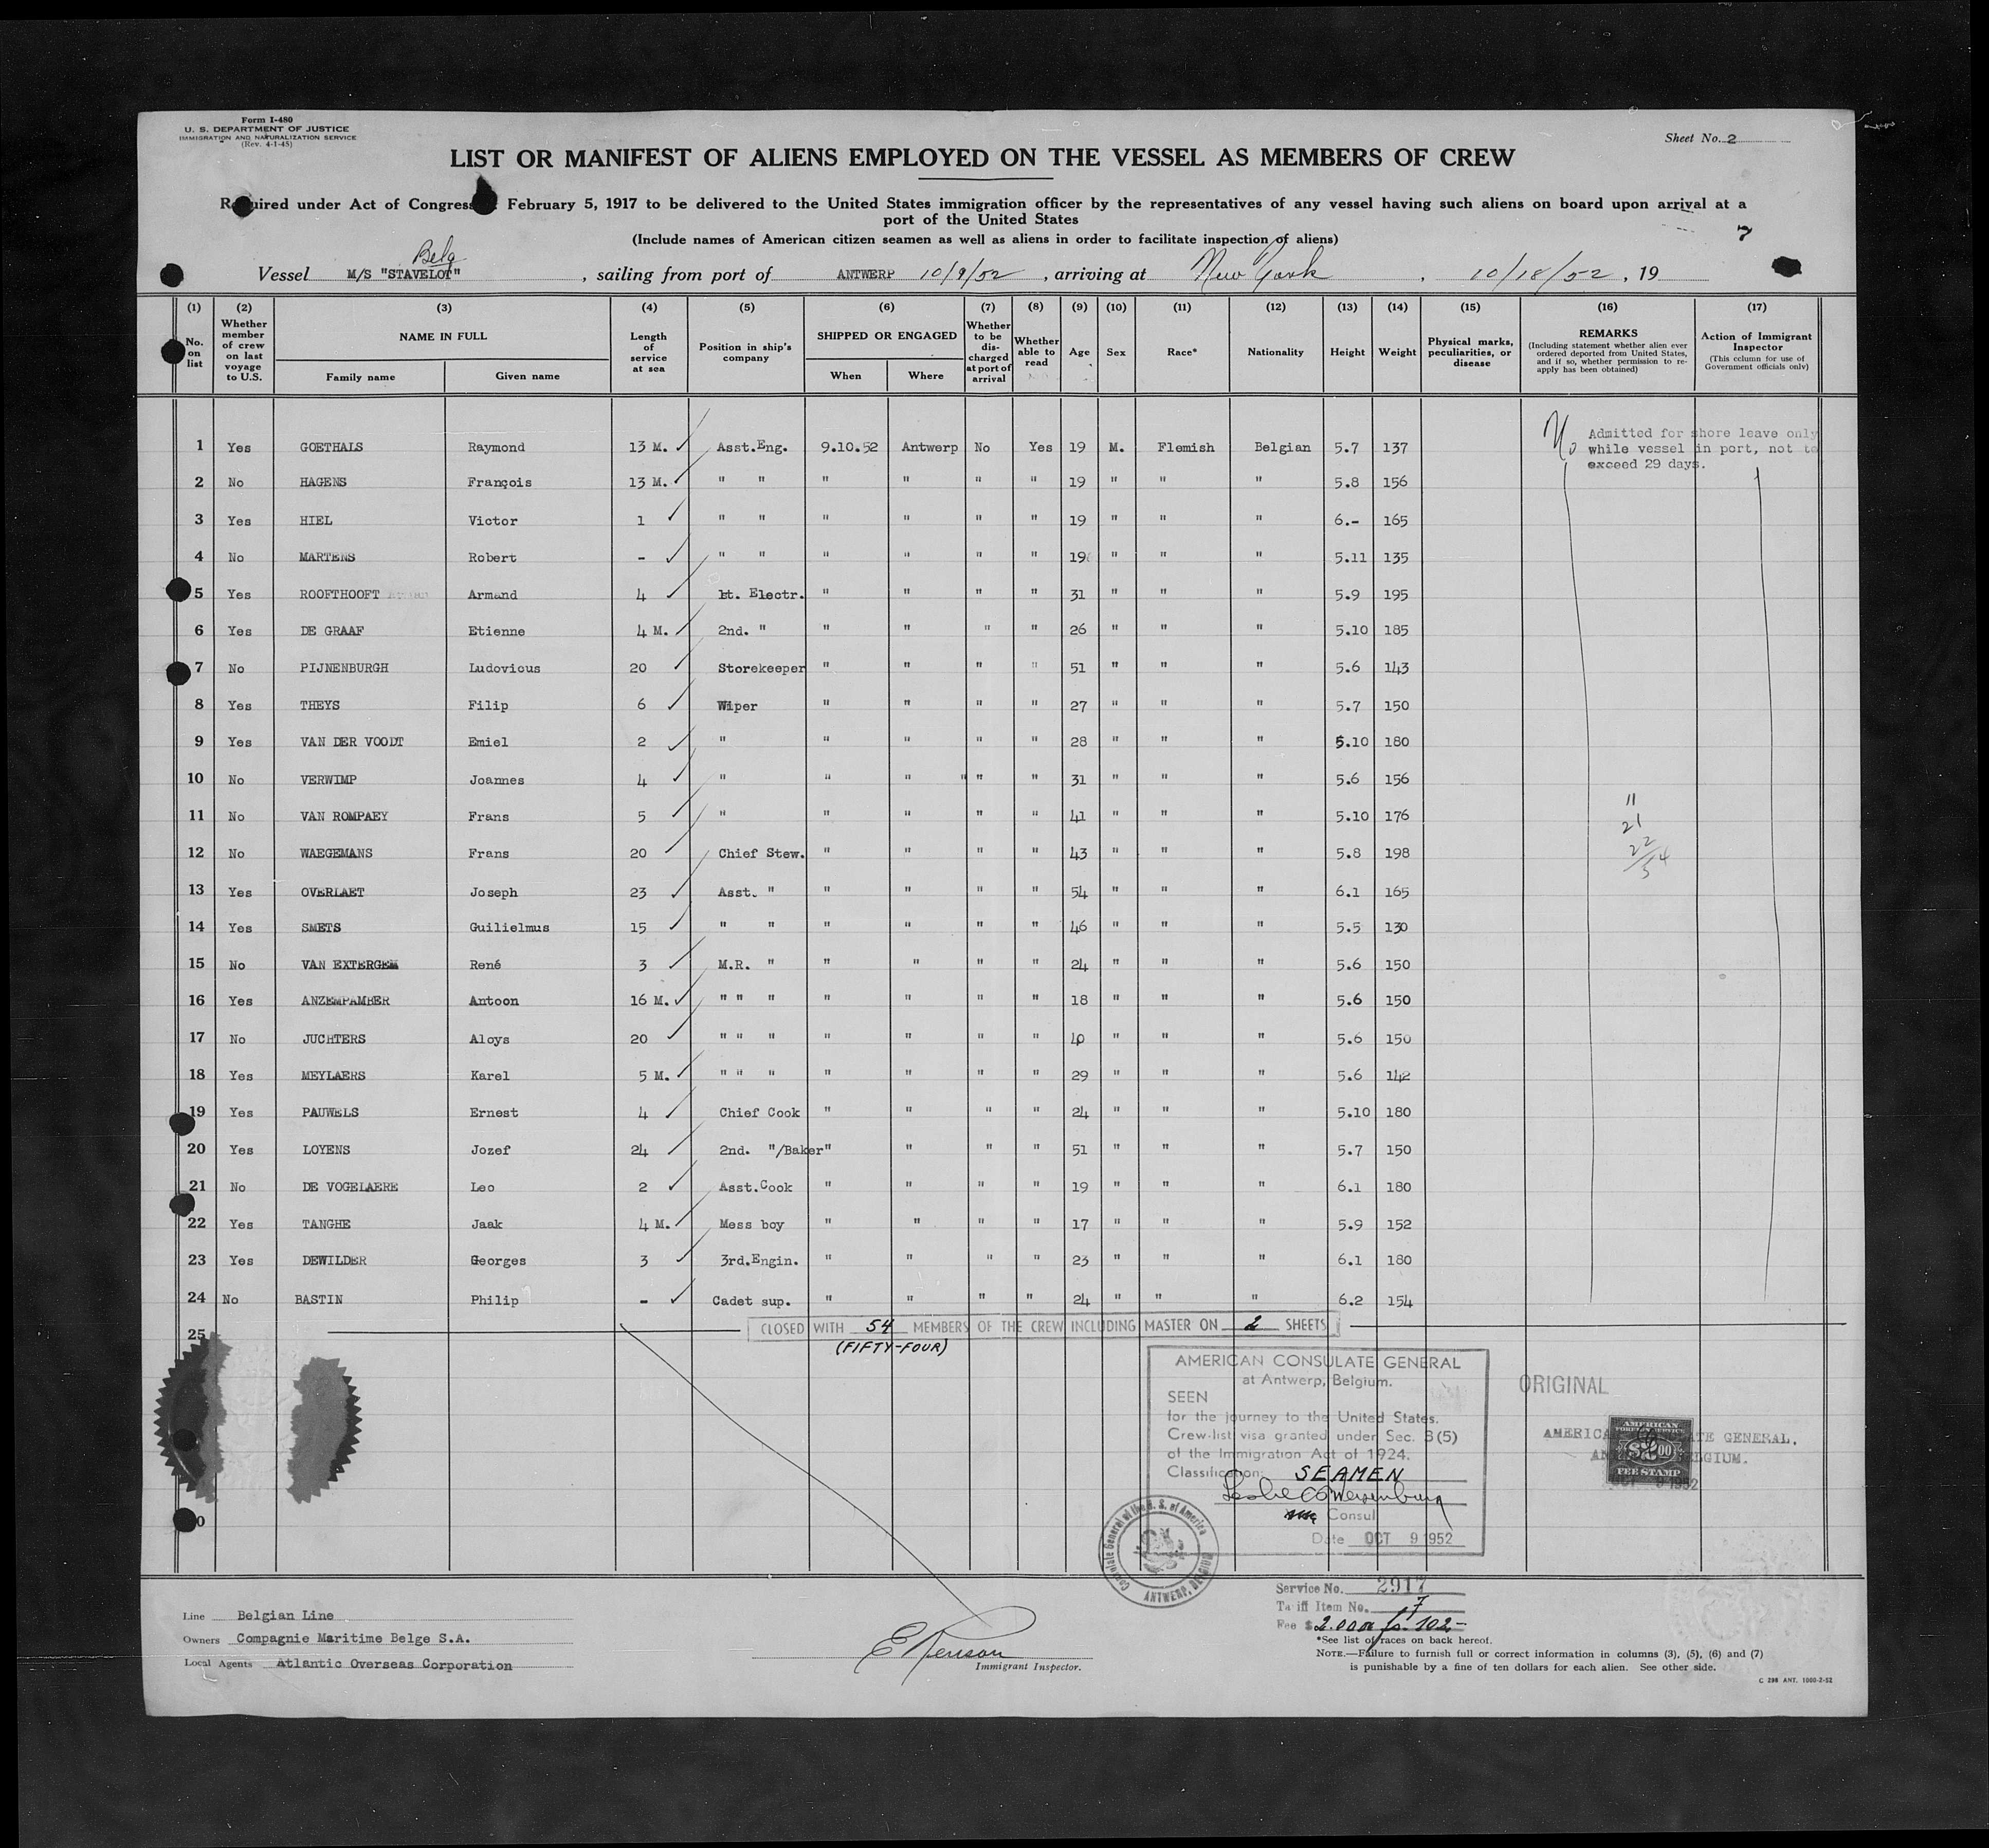 Form I-480
U. S. DEPARTMENT OF JUSTICE
IMMIGRATION AND NATURALIZATION SERVICE
(Rev. 4-1-45)
Sheet No. 2
LIST OR MANIFEST OF ALIENS EMPLOYED ON THE VESSEL AS MEMBERS OF CREW
Required under Act of Congress February 5, 1917 to be delivered to the United States immigration officer by the representatives of any vessel having such aliens on board upon arrival at a
port of the United States
(Include names of American citizen seamen as well as aliens in order to facilitate inspection of aliens)
7
Belg
Vessel M/S "STAVELOT" , sailing from port of ANTWERP 10/9/52 , arriving at New York , 10/18/52 , 19
(1) (2) (3) (4) (5) (6) (7) (8) (9) (10) (11) (12) (13) (14) (15) (16) (17)
No. on list Whether member of crew on last voyage to U.S. NAME IN FULL Family name Given name Length of service at sea Position in ship's company SHIPPED OR ENGAGED When Where Whether to be discharged at port of arrival Whether able to read Age Sex Race* Nationality Height Weight Physical marks, peculiarities, or disease REMARKS (Including statement whether alien ever ordered deported from United States, and if so, whether permission to reapply has been obtained) Action of Immigrant Inspector (This column for use of Government officials only)
1 Yes GOETHALS Raymond 13 M. Asst.Eng. 9.10.52 Antwerp No Yes 19 M. Flemish Belgian 5.7 137 No Admitted for shore leave only
while vessel in port, not to
exceed 29 days.
2 No HAGENS François 13 M. " " " " " " 19 " " " 5.8 156
3 Yes HIEL Victor 1 " " " " " " 19 " " " 6.- 165
4 No MARTENS Robert - " " " " " " 19 " " " 5.11 135
5 Yes ROOFTHOOFT Armand 4 1t. Electr. " " " " 31 " " " 5.9 195
6 Yes DE GRAAF Etienne 4 M. 2nd. " " " " " 26 " " " 5.10 185
7 No PIJNENBURGH Ludovicus 20 Storekeeper " " " " 51 " " " 5.6 143
8 Yes THEYS Filip 6 Wiper " " " " 27 " " " 5.7 150
9 Yes VAN DER VOODT Emiel 2 " " " " " 28 " " " 5.10 180
10 No VERWIMP Joannes 4 " " " " " " 31 " " " 5.6 156
11 No VAN ROMPAEY Frans 5 " " " " " 41 " " " 5.10 176
12 No WAEGEMANS Frans 20 Chief Stew. " " " " 43 " " " 5.8 198
13 Yes OVERLAET Joseph 23 Asst. " " " " " 54 " " " 6.1 165
14 Yes SMETS Guilielmus 15 " " " " " " 46 " " " 5.5 130
15 No VAN EXTERGEM René 3 M.R. " " " " " 24 " " " 5.6 150
16 Yes ANZEMPAMBER Antoon 16 M. " " " " " " " 18 " " " 5.6 150
17 No JUCHTERS Aloys 20 " " " " " " " 40 " " " 5.6 150
18 Yes MEYLAERS Karel 5 M. " " " " " " " 29 " " " 5.6 142
19 Yes PAUWELS Ernest 4 Chief Cook " " " " 24 " " " 5.10 180
20 Yes LOYENS Jozef 24 2nd. "/Baker" " " " 51 " " " 5.7 150
21 No DE VOGELAERE Leo 2 Asst.Cook " " " " 19 " " " 6.1 180
22 Yes TANGHE Jaak 4 M. Mess boy " " " " 17 " " " 5.9 152
23 Yes DEWILDER Georges 3 3rd.Engin. " " " " 23 " " " 6.1 180
24 No BASTIN Philip - Cadet sup. " " " " 24 " " " 6.2 154
11
21
22
54
25
CLOSED WITH 54 MEMBERS OF THE CREW INCLUDING MASTER ON 2 SHEETS
(FIFTY-FOUR)
AMERICAN CONSULATE GENERAL
at Antwerp, Belgium.
SEEN
for the journey to the United States.
Crew-list visa granted under Sec. 3(5)
of the Immigration Act of 1924.
Classification: SEAMEN
Consul
Date OCT 9 1952
ORIGINAL
AMERICAN
FEE STAMP
GENERAL,
Consulate General of the U. S. of America
ANTWERP, BELGIUM
Service No. 2917
Tariff Item No. 7
Fee $ 2.00 fs. 102-
*See list of races on back hereof.
NOTE.—Failure to furnish full or correct information in columns (3), (5), (6) and (7)
is punishable by a fine of ten dollars for each alien. See other side.
C 298 ANT. 1000-2-52
Line Belgian Line
Owners Compagnie Maritime Belge S.A.
Local Agents Atlantic Overseas Corporation
Immigrant Inspector.